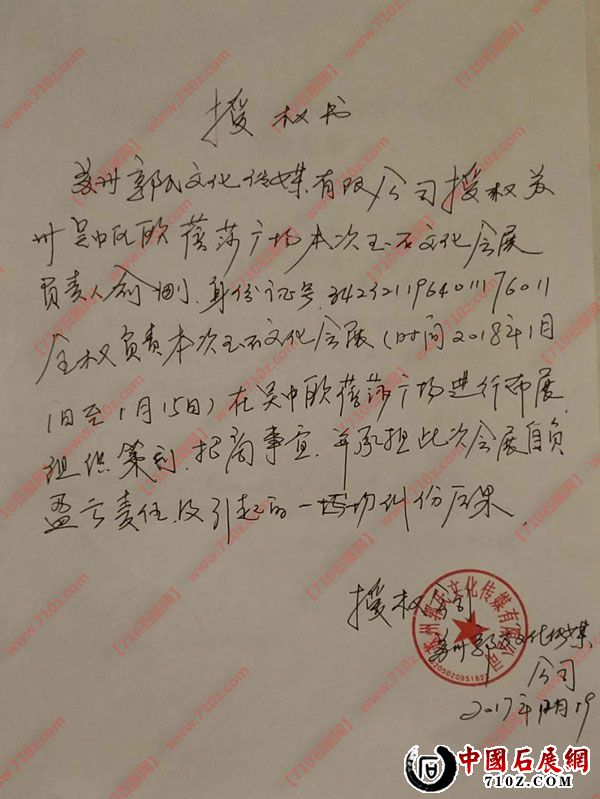 授权书
苏州郭氏文化传媒有限公司授权苏
州吴中区欧蓓莎广场本次玉石文化会展
负责人俞刚，身份证号，342321196401176011
全权负责本次玉石文化会展（时间2018年1月
1日至1月15日）在吴中欧蓓莎广场进行布展，
组织策划，招商事宜，并承担此次会展自负
盈亏责任，及引起的一切纠份后果。
授权公司
苏州郭氏文化传媒
公司
2017年12月19
苏州郭氏文化传媒有限公司
中國石展網
710Z.COM
【710石展网】
www.710z.com